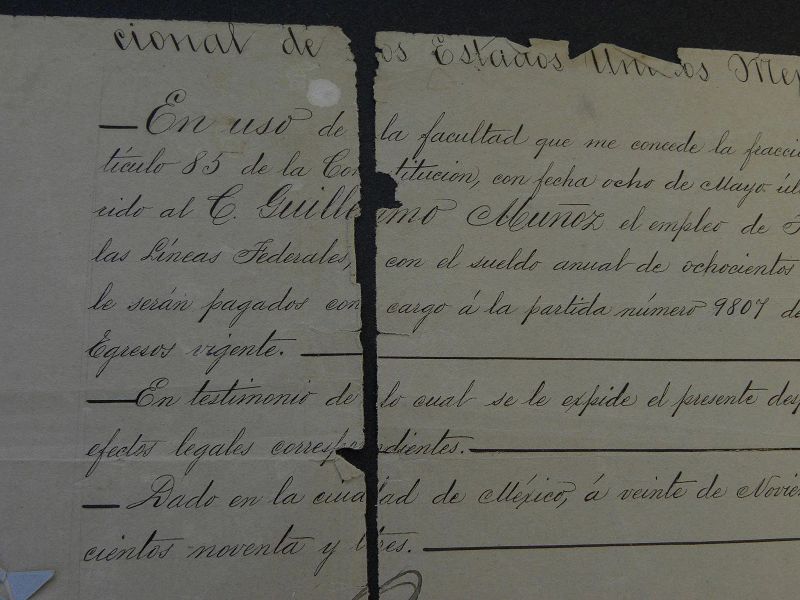 cional de los Estados Unidos Me
— En uso de la facultad que me concede la fracci
tículo 85 de la Constitucion, con fecha ocho de Mayo úl
rido al C. Guillermo Muñoz el empleo de
las Líneas Federales, con el sueldo anual de ochocientos
le serán pagados con cargo á la partida número 9807 de
Egresos vigente. —
— En testimonio de lo cual se le expide el presente desp
efectos legales correspondientes. —
— Dado en la ciudad de México, á veinte de Novie
cientos noventa y tres. —